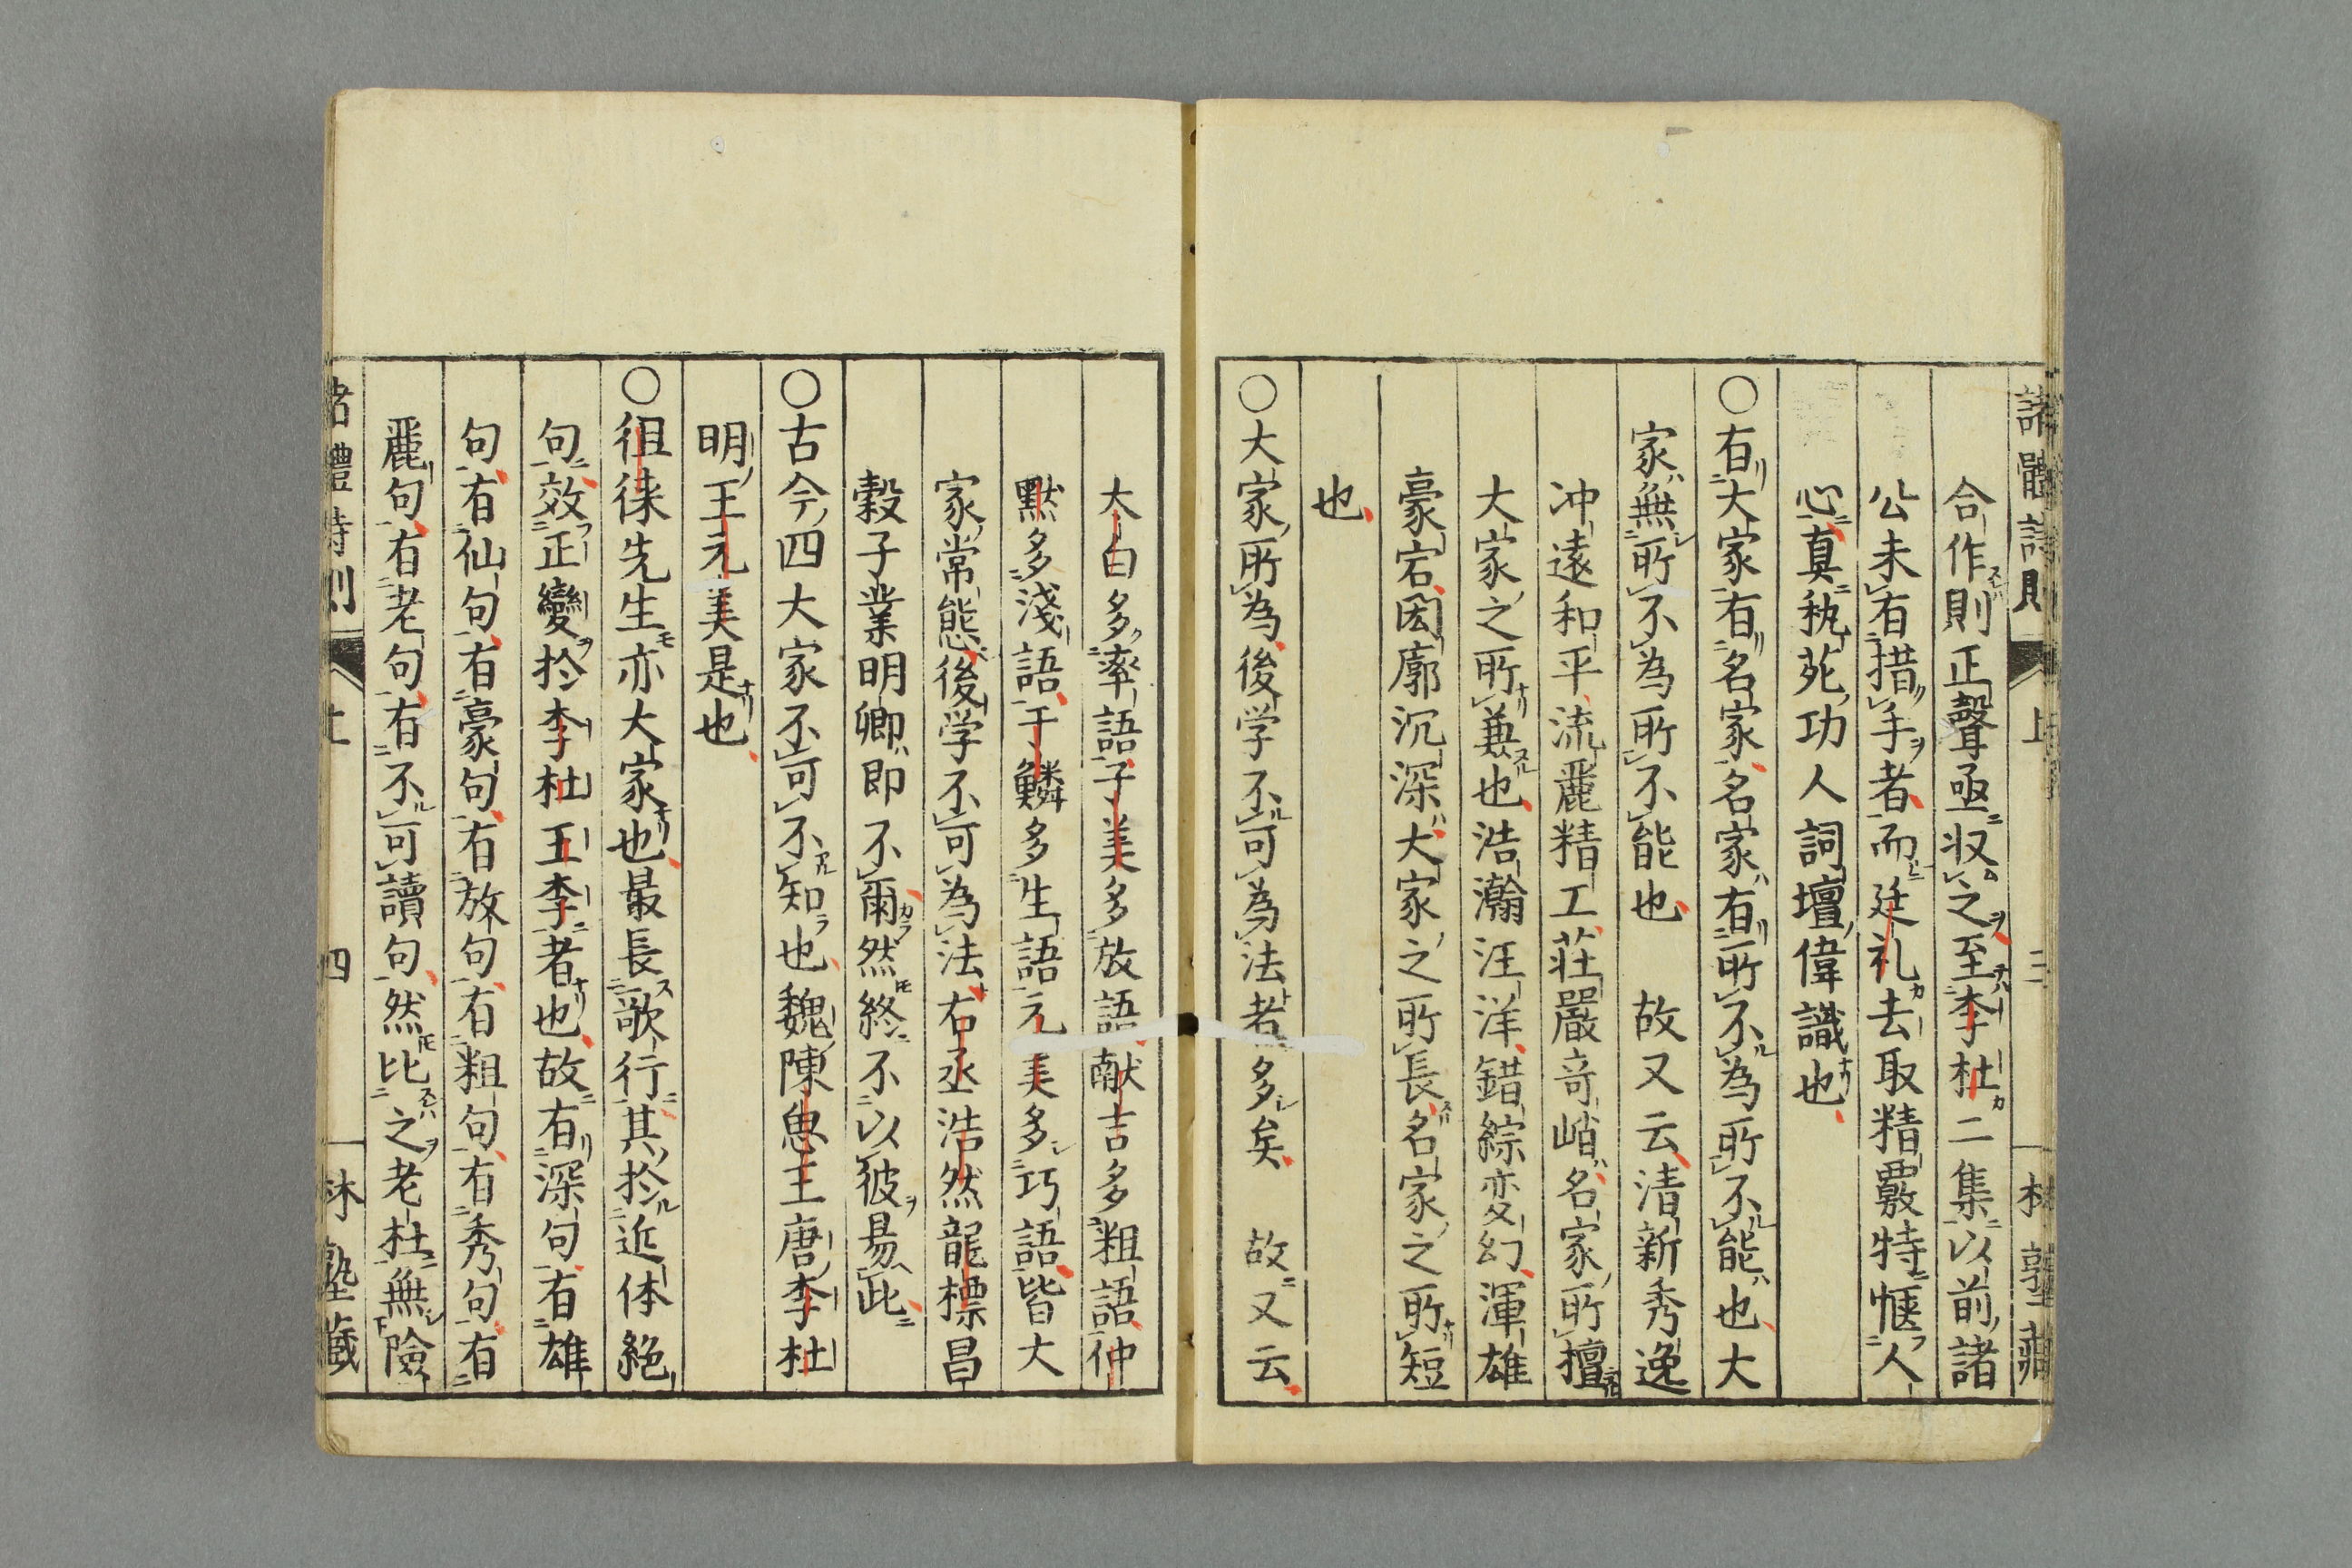 諸體詩則 上 三 林塾藏
合作則正聲亟収之至李杜二集以前諸
公未有措手者而廷礼去取精覈特愜人
心真秇苑功人詞壇偉識也
○有大家有名家名家有所不為所不能也大
家無所不為所不能也 故又云清新秀逸
冲遠和平流麗精工莊嚴奇峭名家所擅
大家之所兼也浩瀚汪洋錯綜変幻渾雄
豪宕閎廓沉深大家之所長名家之所短
也
○大家所為後学不可為法者多矣 故又云
太白多率語子美多放語献吉多粗語仲
黙多淺語于鱗多生語元美多巧語皆大
家常態後学不可為法右丞浩然龍標昌
穀子業明卿即不爾然終不以彼易此
○古今四大家不可不知也魏陳思王唐李杜
明王元美是也
○徂徠先生亦大家也最長歌行其於近体絶
句效正變於李杜王李者也故有深句有雄
句有仙句有豪句有放句有粗句有秀句有
麗句有老句有不可讀句然比之老杜無險
諸體詩則 上 四 林塾藏